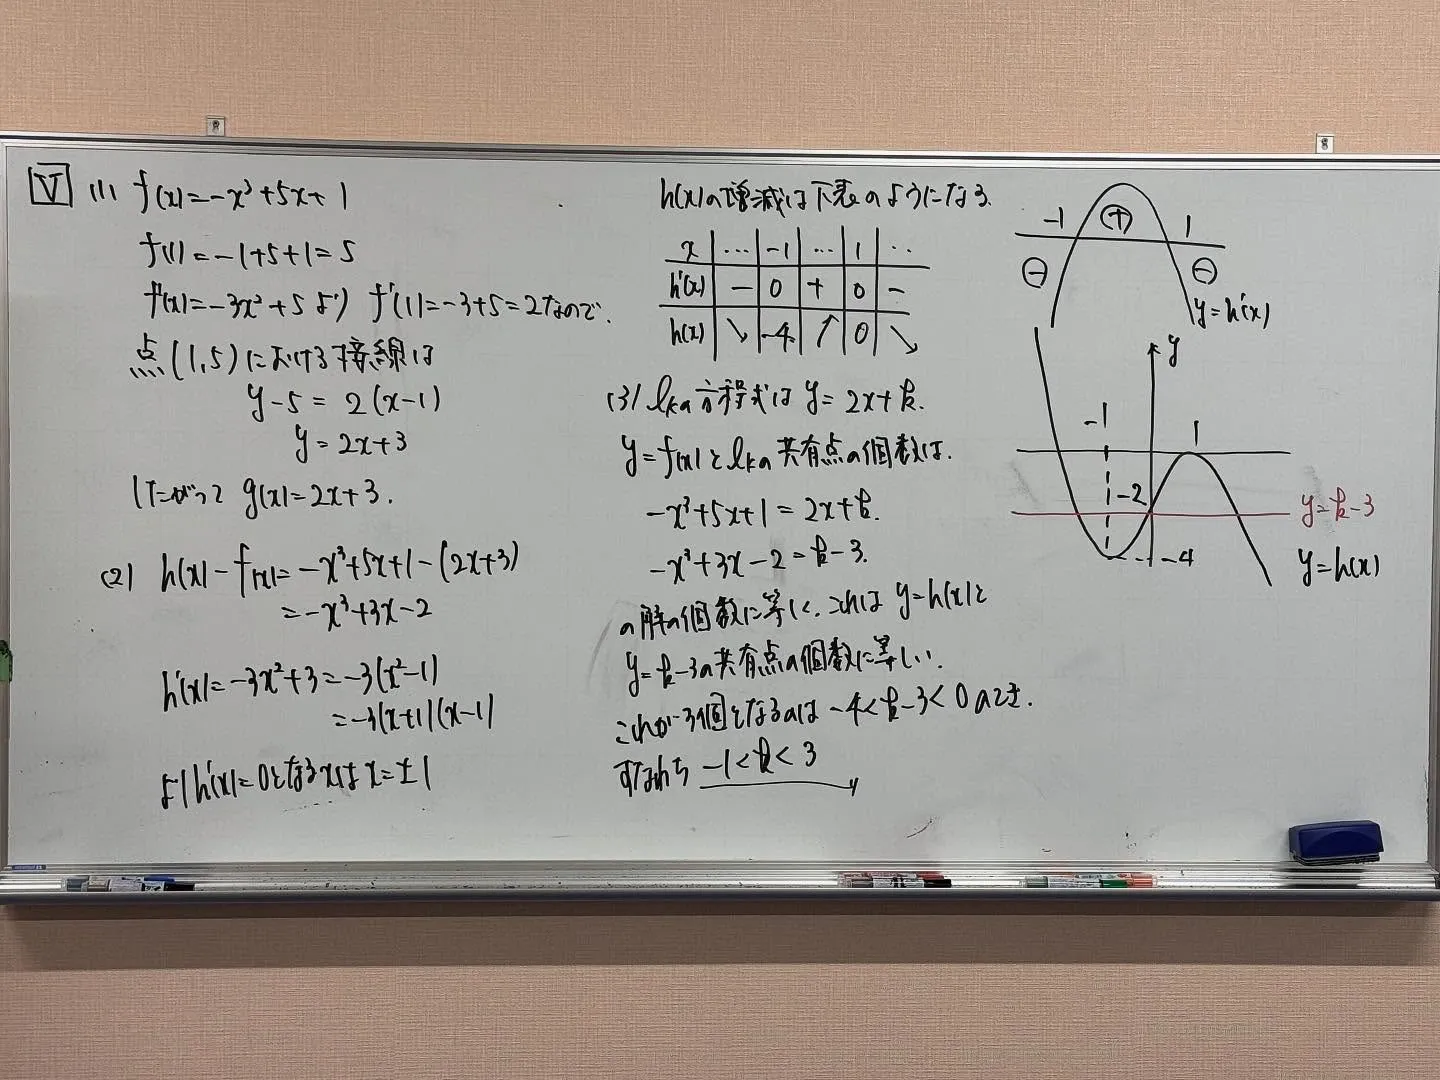 V (1) f(x)=-x³+5x+1
f(1)=-1+5+1=5
f'(x)=-3x²+5より f'(1)=-3+5=2なので、
点(1,5)における接線は
y-5=2(x-1)
y=2x+3
したがって g(x)=2x+3.
(2) h(x)-f(x)=-x³+5x+1-(2x+3)
=-x³+3x-2
h'(x)=-3x²+3=-3(x²-1)
=-3(x+1)(x-1)
より h'(x)=0となるxは x=±1
h(x)の増減は下表のようになる.
x … -1 … 1 ‥
h'(x) - 0 + 0 -
h(x) ↘ -4 ↗ 0 ↘
(3) lkの方程式は y=2x+k.
y=f(x)とlkの共有点の個数は、
-x³+5x+1=2x+k.
-x³+3x-2=k-3.
の解の個数に等しく、これは y=h(x)と
y=k-3の共有点の個数に等しい.
これが3個となるのは -4<k-3<0のとき.
すなわち -1<k<3
-1 + 1
- -
y=h'(x)
y
-1 1
-2
y=k-3
-4
y=h(x)